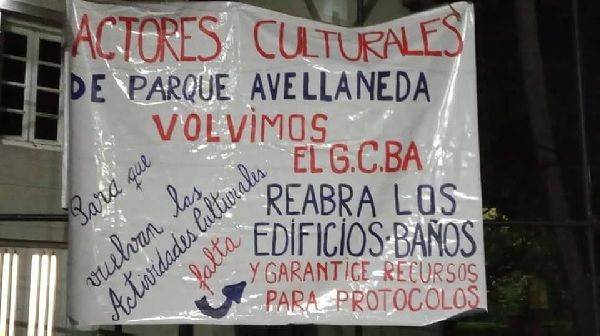 ACTORES CULTURALES
DE PARQUE AVELLANEDA
VOLVIMOS
Para que
vuelvan las
Actividades Culturales
falta
EL G.C.BA
REABRA LOS
EDIFICIOS-BAÑOS
Y GARANTICE RECURSOS
PARA PROTOCOLOS